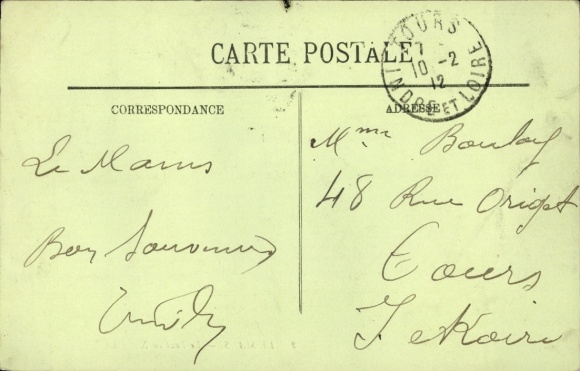 CARTE POSTALE
TOURS
10 -2
12
INDRE ET LOIRE
CORRESPONDANCE
ADRESSE
Le Mans
Bon Souvenir
Mme Boulay
48 Rue Origet
Tours
I et Loire